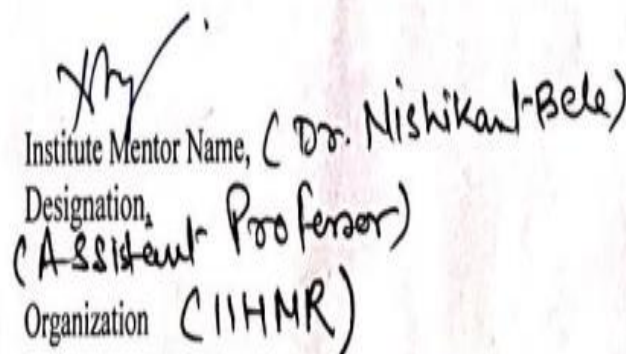 Institute Mentor Name, ( Dr. Nishikant Bele)
Designation,
(Assistant Professor)
Organization (IIHMR)